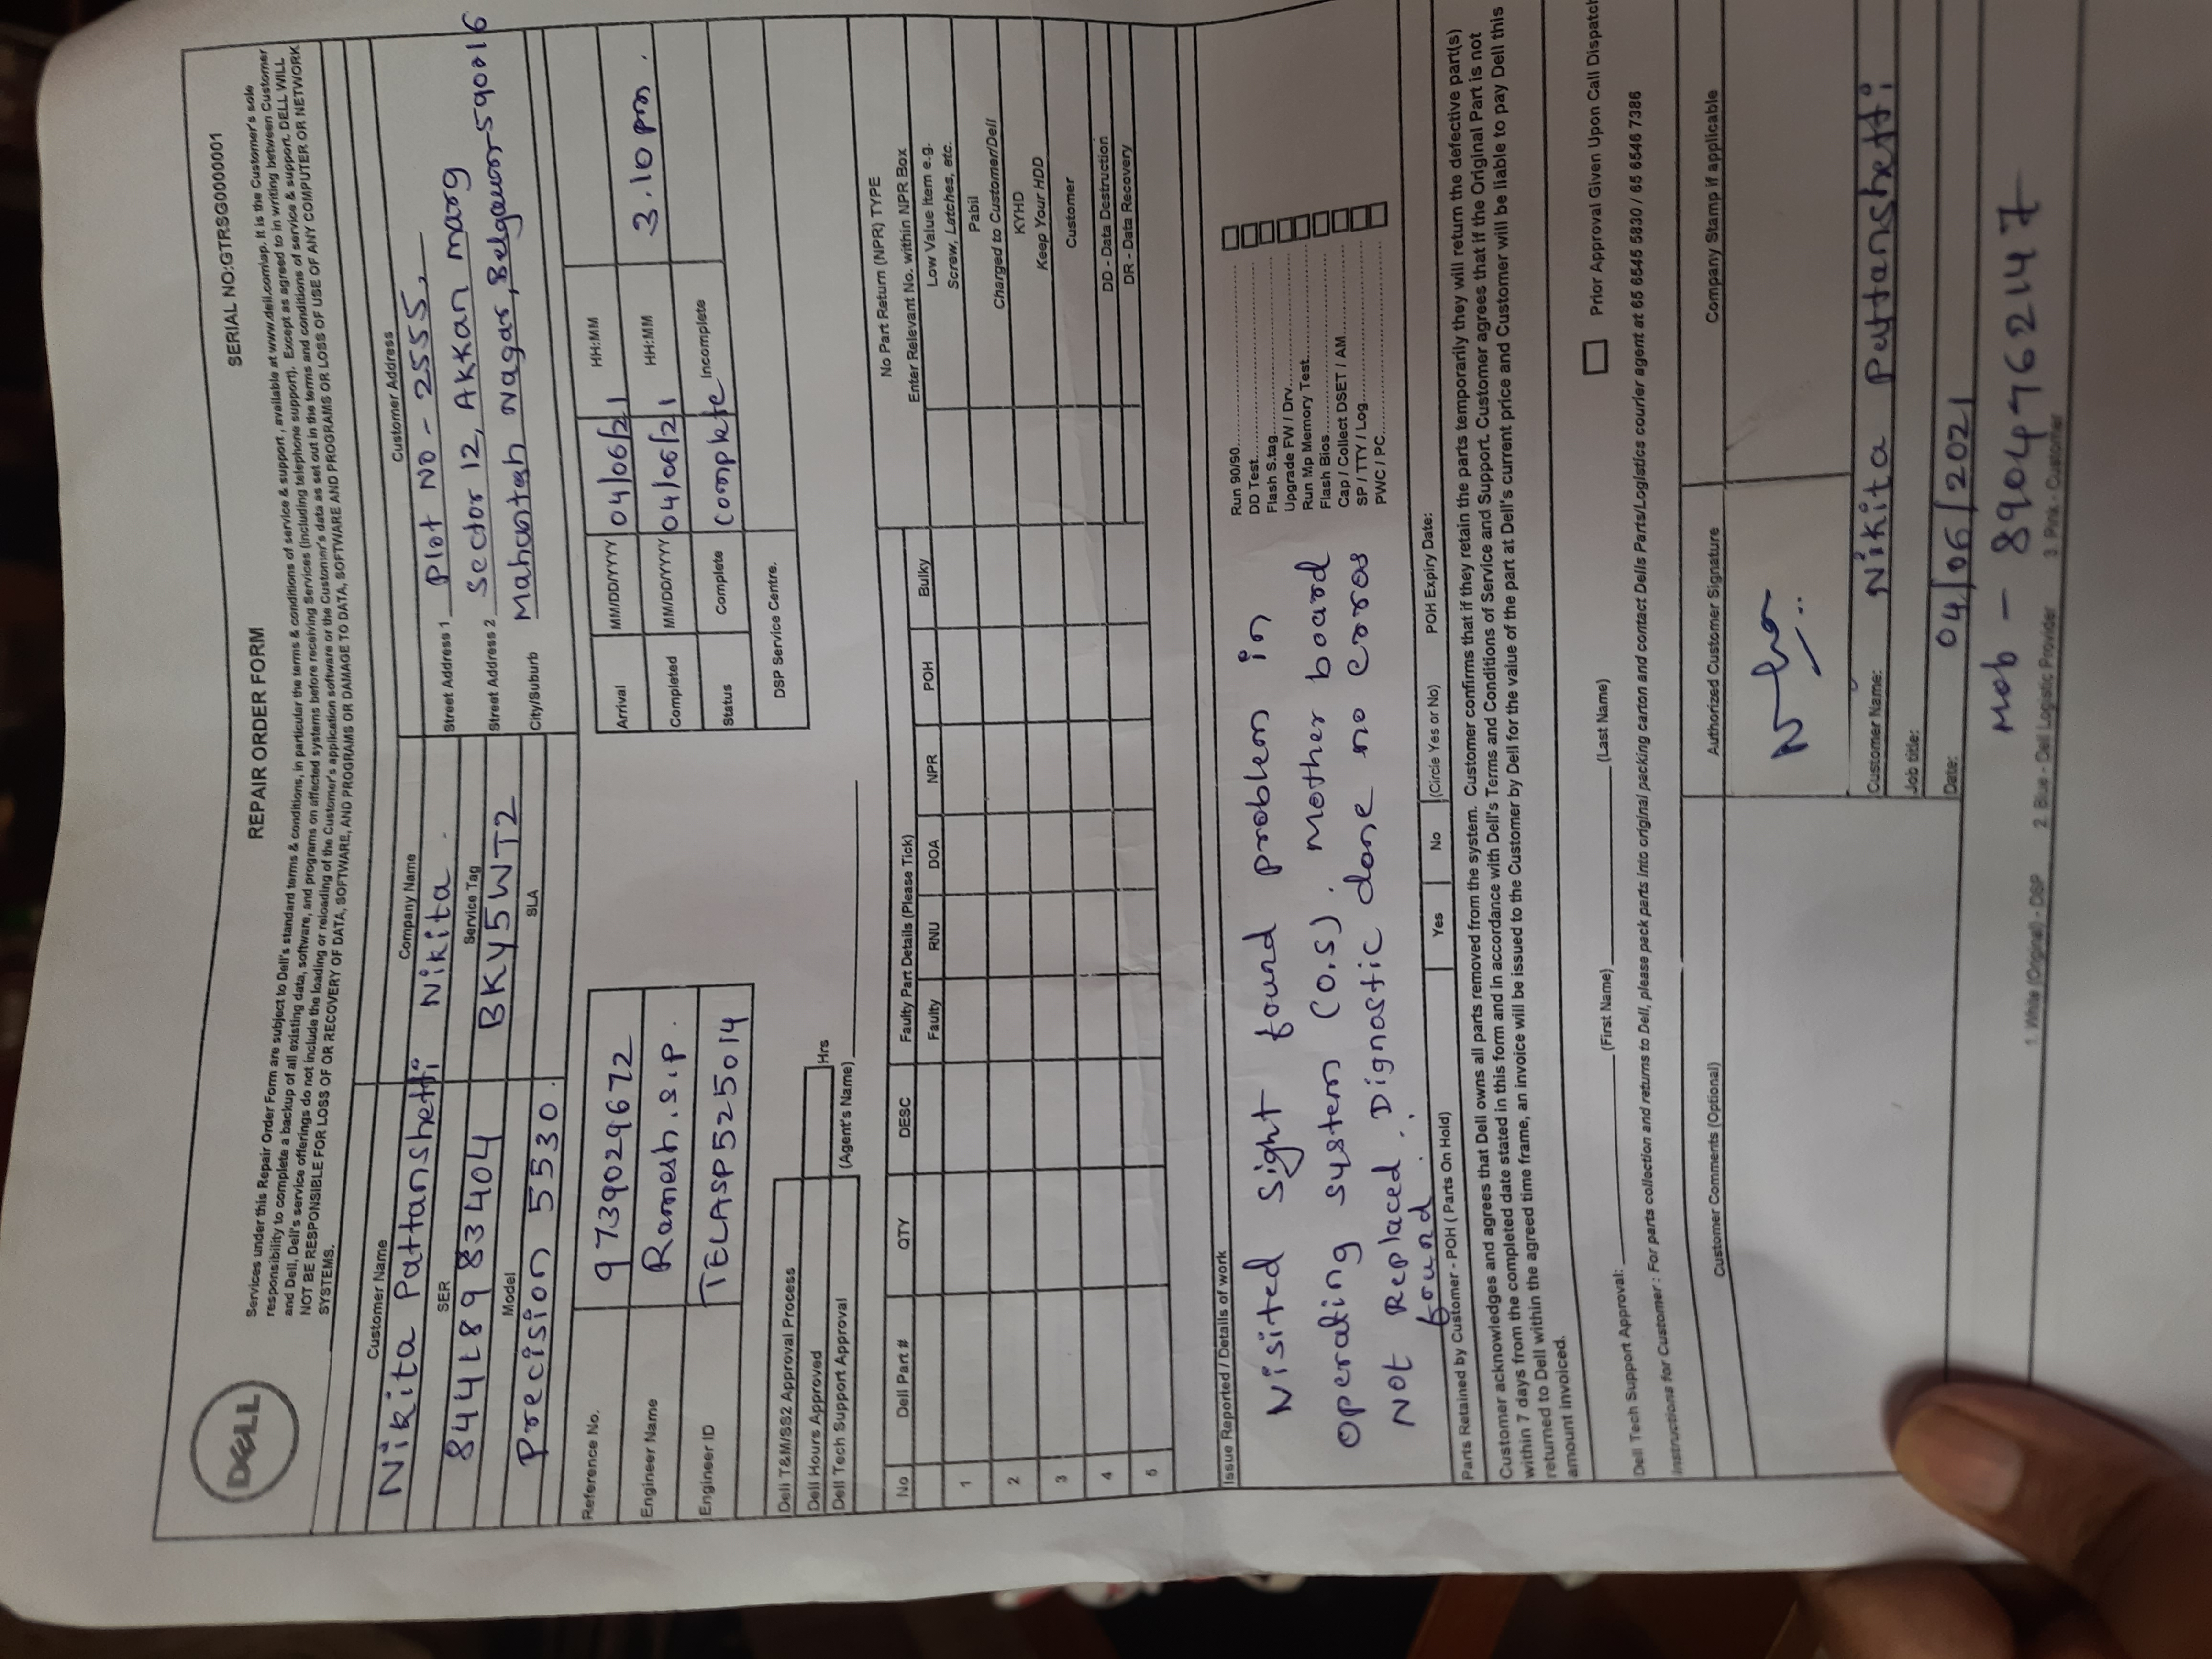 DELL
REPAIR ORDER FORM
SERIAL NO:GTRSG0000001
Services under this Repair Order Form are subject to Dell's standard terms & conditions, in particular the terms & conditions of service & support , available at www.dell.com\ap. It is the Customer's sole
responsibility to complete a backup of all existing data, software, and programs on affected systems before receiving Services (including telephone support). Except as agreed to in writing between Customer
and Dell, Dell's service offerings do not include the loading or reloading of the Customer's application software or the Customer's data as set out in the terms and conditions of service & support. DELL WILL
NOT BE RESPONSIBLE FOR LOSS OF OR RECOVERY OF DATA, SOFTWARE, AND PROGRAMS OR DAMAGE TO DATA, SOFTWARE AND PROGRAMS OR LOSS OF USE OF ANY COMPUTER OR NETWORK
SYSTEMS.
Customer Name
Company Name
Customer Address
Nikita Pattanshetti
Nikita
Street Address 1 Plot No - 2555,
SER
Service Tag
844L8983404
BKY5WT2
Street Address 2 Sector 12, Akkan marg
Model
SLA
City/Suburb Mahantesh Nagar, Belgaum-590016
Precision 5530.
Reference No. 9739029672
Engineer Name Ramesh.s.p.
Engineer ID TELASP525014
Arrival MM/DD/YYYY 04/06/21 HH:MM
Completed MM/DD/YYYY 04/06/21 HH:MM 3.10 pm.
Status Complete complete Incomplete
DSP Service Centre.
Dell T&M/SS2 Approval Process
Dell Hours Approved Hrs
Dell Tech Support Approval (Agent's Name)
No Dell Part # QTY DESC Faulty Part Details (Please Tick)
Faulty RNU DOA NPR POH Bulky
1
2
3
4
5
No Part Return (NPR) TYPE
Enter Relevant No. within NPR Box
Low Value Item e.g.
Screw, Latches, etc.
Pabil
Charged to Customer/Dell
KYHD
Keep Your HDD
Customer
DD - Data Destruction
DR - Data Recovery
Issue Reported / Details of work
Nisited Sight found problem in
operating system (O.S). Mother board
Not Replaced. Dignostic done no erros
found.
Run 90/90
DD Test
Flash S.tag
Upgrade FW / Drv
Run Mp Memory Test
Flash Bios
Cap / Collect DSET / AM
SP / TTY / Log
PWC / PC
Parts Retained by Customer - POH ( Parts On Hold) Yes No (Circle Yes or No) POH Expiry Date:
Customer acknowledges and agrees that Dell owns all parts removed from the system. Customer confirms that if they retain the parts temporarily they will return the defective part(s)
within 7 days from the completed date stated in this form and in accordance with Dell's Terms and Conditions of Service and Support. Customer agrees that if the Original Part is not
returned to Dell within the agreed time frame, an invoice will be issued to the Customer by Dell for the value of the part at Dell's current price and Customer will be liable to pay Dell this
amount invoiced.
Dell Tech Support Approval: (First Name) (Last Name) Prior Approval Given Upon Call Dispatch
Instructions for Customer : For parts collection and returns to Dell, please pack parts into original packing carton and contact Dells Parts/Logistics courier agent at 65 6545 5830 / 65 6546 7386
Customer Comments (Optional)
Authorized Customer Signature
Company Stamp if applicable
Customer Name: Nikita Pattanshetti
Job title:
Date: 04/06/2021
Mob - 8904762147
1. White (Original) - DSP 2. Blue - Dell Logistic Provider 3. Pink - Customer